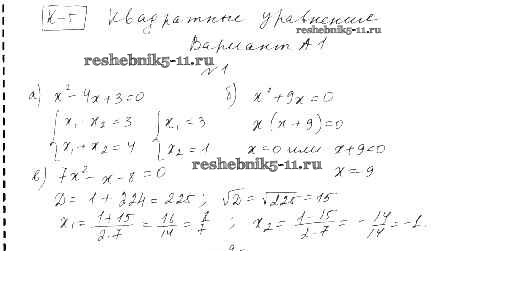 К-5 Квадратные уравнения
reshebnik5-11.ru
Вариант А1
reshebnik5-11.ru
№1
а) x² - 4x + 3 = 0 б) x² + 9x = 0
{ x₁ x₂ = 3 { x₁ = 3 x(x + 9) = 0
{ x₁ + x₂ = 4 { x₂ = 1 x = 0 или x + 9 = 0
reshebnik5-11.ru
в) 7x² - x - 8 = 0 x = 9
D = 1 + 224 = 225 ; √D = √225 = 15
x₁ = (1 + 15)/(2·7) = 16/14 = 8/7 ; x₂ = (1 - 15)/(2·7) = -14/14 = -1.